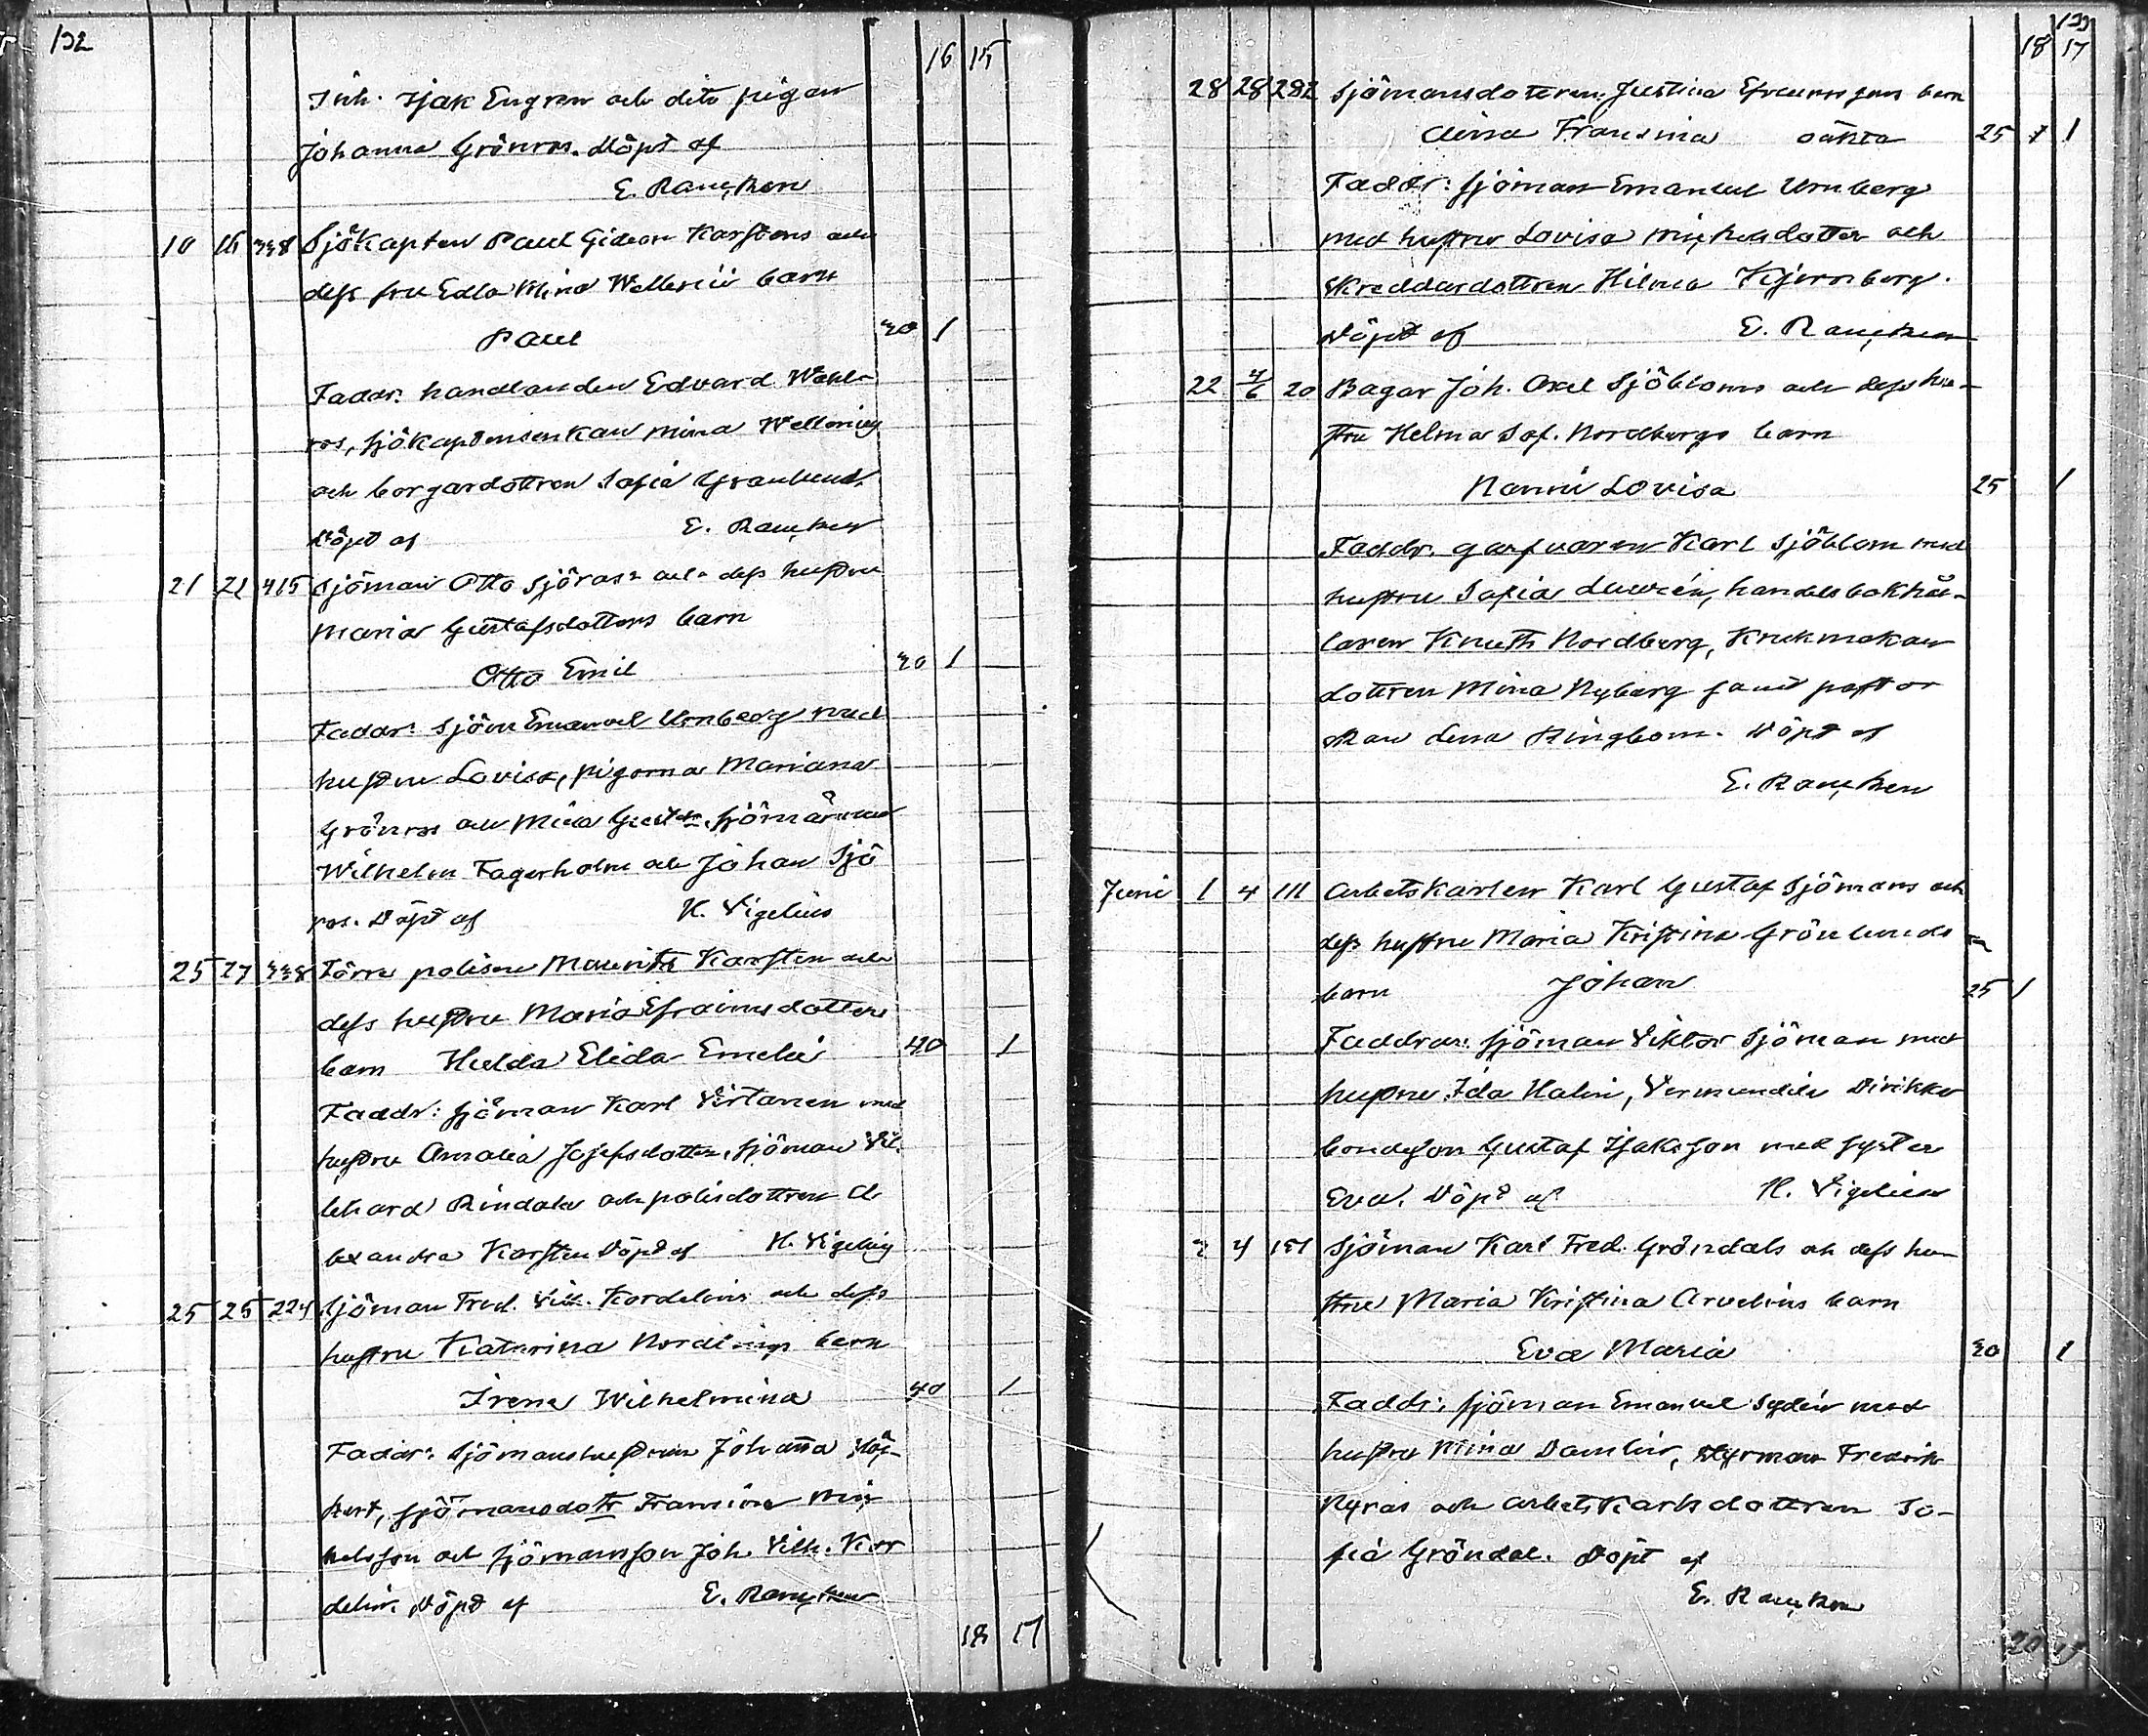 132
16 15
Inh. Isjak Engren och dito pigan
Johanna Grönros. Döpt af
E. Rancken
10 16 338 Sjökapten Paul Gideon Karstens och
dess fru Edla Mina Wellenii barn
Paul 30 1
Faddr: handlanden Edvard Wahl-
ros, sjökaptenskan Mina Wellenius
och borgardottren Sofia Granlund.
Döpt af E. Rancken
21 22 415 Sjöman Otto Sjöros och dess hustru
Maria Gustafsdotters barn
Otto Emil 30 1
Faddr: Sjöm Emanuel Urnberg med
hustru Lovisa, pigorna Mariana
Grönros och Mina, sjömännen
Wilhelm Fagerholm och Johan Sjö
ros. Döpt af H. Vigelius
25 27 338 Förre polisen Maurits Karsten och
dess hustru Maria Efraimsdotters
barn Hulda Elida Emelie 40 1
Faddr: sjöman Karl Virtanen med
hustru Amalia Josefsdotter, Sjöman Vil.
lehard Rindahl och polisdottren A
lexandra Karsten Döpt af H. Vigelius
25 25 224 Sjöman Fred. Vilh. Kordelins och dess
hustru Katarina Nordlings barn
Irene Wilhelmina 40 1
Faddr: Sjömanshustrun Johanna
, sjömansdotr Fransina Mic
kelsson och sjömansson Joh. Vilh. Kor
delin. Döpt af E. Rancken
18 17
133
18 17
28 28 282 Sjömansdottren Justina Efraimssons barn
Aina Fransina oäkta 25 1
Faddr: sjöman Emanuel Urnberg
med hustru Lovisa Mickelsdotter och
Skreddardottren Hilma Kjernberg.
Döpt af E. Rancken
22 4/6 20 Bagar Joh. Axel Sjöbloms och dess hu-
stru Helma Sof. Nordbergs barn
Nanni Lovisa 25 1
Faddr: garfvaren Karl Sjöblom med
hustru Sofia, handelsbokhål-
laren Knuth Nordberg, Krukmakar
dottren Mina Nyberg samt pastor
skan Lena Ringbom. Döpt af
E. Rancken
Juni 1 4 111 Arbetskarlen Karl Gustaf Sjömans och
dess hustru Maria Kristina Grönlunds
barn Johan 25 1
Faddrar: sjöman Viktor Sjöman med
hustru Ida Halin, Vermundila Dirikko
bondeson Gustaf Isjaksson med syster
Eva. Döpt af H. Vigelius
2 4 151 Sjöman Karl Fred. Gröndals och dess hu
stru Maria Kristina Arvelins barn
Eva Maria 30 1
Faddr: sjöman Emanuel Sydén med
hustru Mina Damlin, styrman Fredrik
Nyros och arbetskarlsdottren So-
fia Gröndal. Döpt af
E. Rancken
20